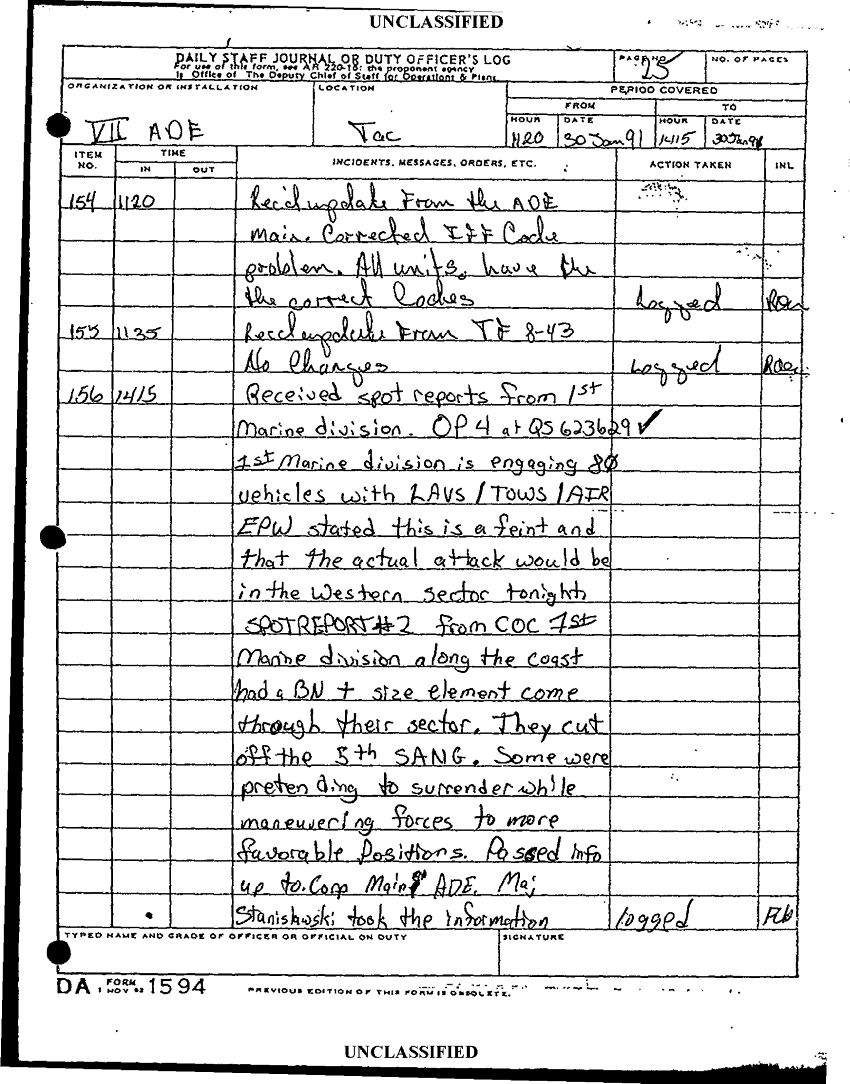 UNCLASSIFIED
DAILY STAFF JOURNAL OR DUTY OFFICER'S LOG
For use of this form, see AR 220-15; the proponent agency
is Office of The Deputy Chief of Staff for Operations & Plans
PAGE NO
NO. OF PAGES
ORGANIZATION OR INSTALLATION
LOCATION
PERIOD COVERED
FROM
TO
HOUR
DATE
HOUR
DATE
VII ADE
Tac
1120
30 Jan 91
1415
30 Jan 91
ITEM NO.
TIME
IN
OUT
INCIDENTS, MESSAGES, ORDERS, ETC.
ACTION TAKEN
INL
154 1120 Rec'd update From the ADE
Main. Corrected IFF Code
problem. All units have the
the correct Codes Logged
155 1135 Rec'd update From TF 8-43
No Changes Logged
156 1415 Received spot reports from 1st
Marine division. OP 4 at QS 623629 ✓
1st Marine division is engaging 80
vehicles with LAVS / TOWS / AIR
EPW stated this is a feint and
that the actual attack would be
in the Western sector tonight
SPOTREPORT #2 from COC 1st
Marine division along the coast
had a BN + size element come
through their sector. They cut
off the 5th SANG. Some were
pretending to surrender while
maneuvering forces to more
favorable positions. Passed info
up to Corp Main & ADE. Maj
Stanislawski took the information logged
TYPED NAME AND GRADE OF OFFICER OR OFFICIAL ON DUTY
SIGNATURE
DA FORM 1 NOV 62 1594
PREVIOUS EDITION OF THIS FORM IS OBSOLETE.
UNCLASSIFIED